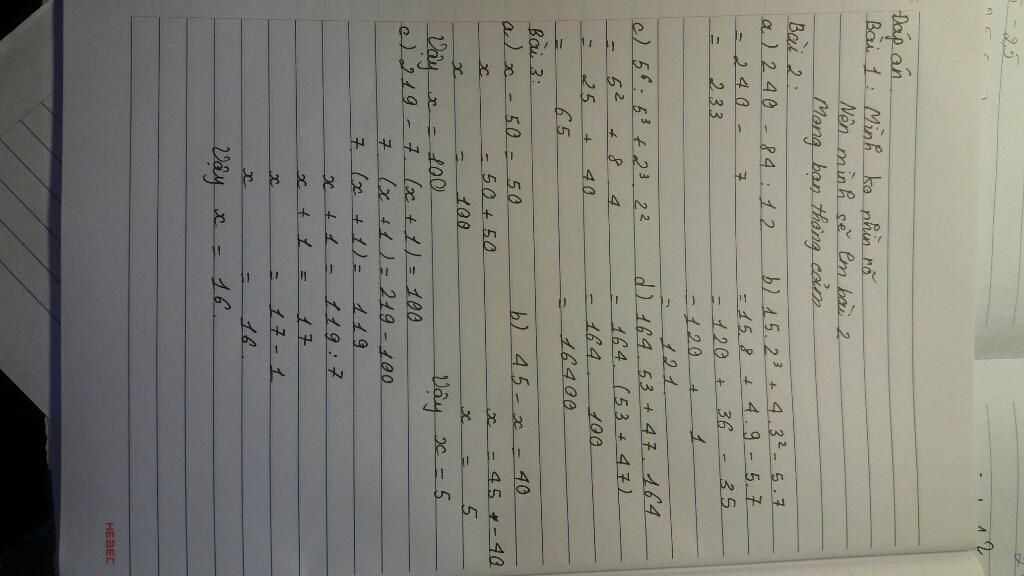 Đáp án
Bài 1 : Mình ko nhìn rõ
Nên mình sẽ làm bài 2
Mong bạn thông cảm
Bài 2 :
a) 240 - 84 : 12
= 240 - 7
= 233
b) 15.2³ + 4.3² - 5.7
= 15.8 + 4.9 - 5.7
= 120 + 36 - 35
= 120 + 1
= 121
c) 5⁶ : 5³ + 2³. 2²
= 5² + 8 4
= 25 + 40
= 65
d) 164. 53 + 47. 164
= 164. (53 + 47)
= 164. 100
= 16400
Bài 3 :
a) x - 50 = 50
x = 50 + 50
x = 100
Vậy x = 100
b) 45 - x = 40
x = 45 - 40
x = 5
Vậy x = 5
c) 219 - 7. (x + 1) = 100
7 (x + 1) = 219 - 100
7. (x + 1) = 119
x + 1 = 119 : 7
x + 1 = 17
x = 17 - 1
x = 16
Vậy x = 16.
HEBEC